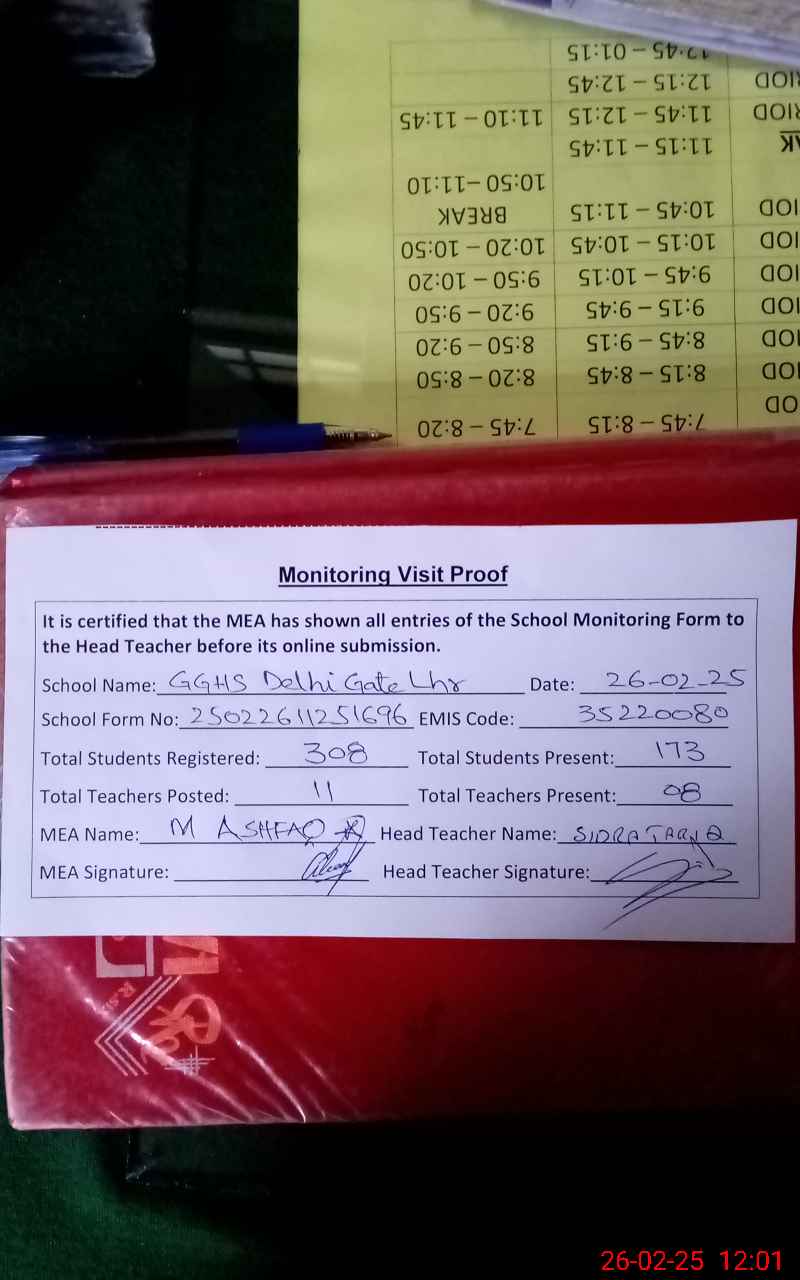 12:45 – 01:15
12:15 – 12:45
11:10 – 11:45 11:45 – 12:15
11:15 – 11:45
10:50 –11:10
BREAK 10:45 – 11:15 IOD
10:20 – 10:50 10:15 – 10:45 IOD
9:50 – 10:20 9:45 – 10:15 IOD
9:20 – 9:50 9:15 – 9:45 IOD
8:50 – 9:20 8:45 – 9:15 IOD
8:20 – 8:50 8:15 – 8:45 IOD
7:45 – 8:20 7:45 – 8:15 OD
Monitoring Visit Proof
It is certified that the MEA has shown all entries of the School Monitoring Form to
the Head Teacher before its online submission.
School Name: GGHS Delhi Gate Lhr Date: 26-02-25
School Form No: 25022611251696 EMIS Code: 35220080
Total Students Registered: 308 Total Students Present: 173
Total Teachers Posted: 11 Total Teachers Present: 08
MEA Name: M ASHFAQ Head Teacher Name: SIDRA TARIQ
MEA Signature: Head Teacher Signature:
26-02-25 12:01